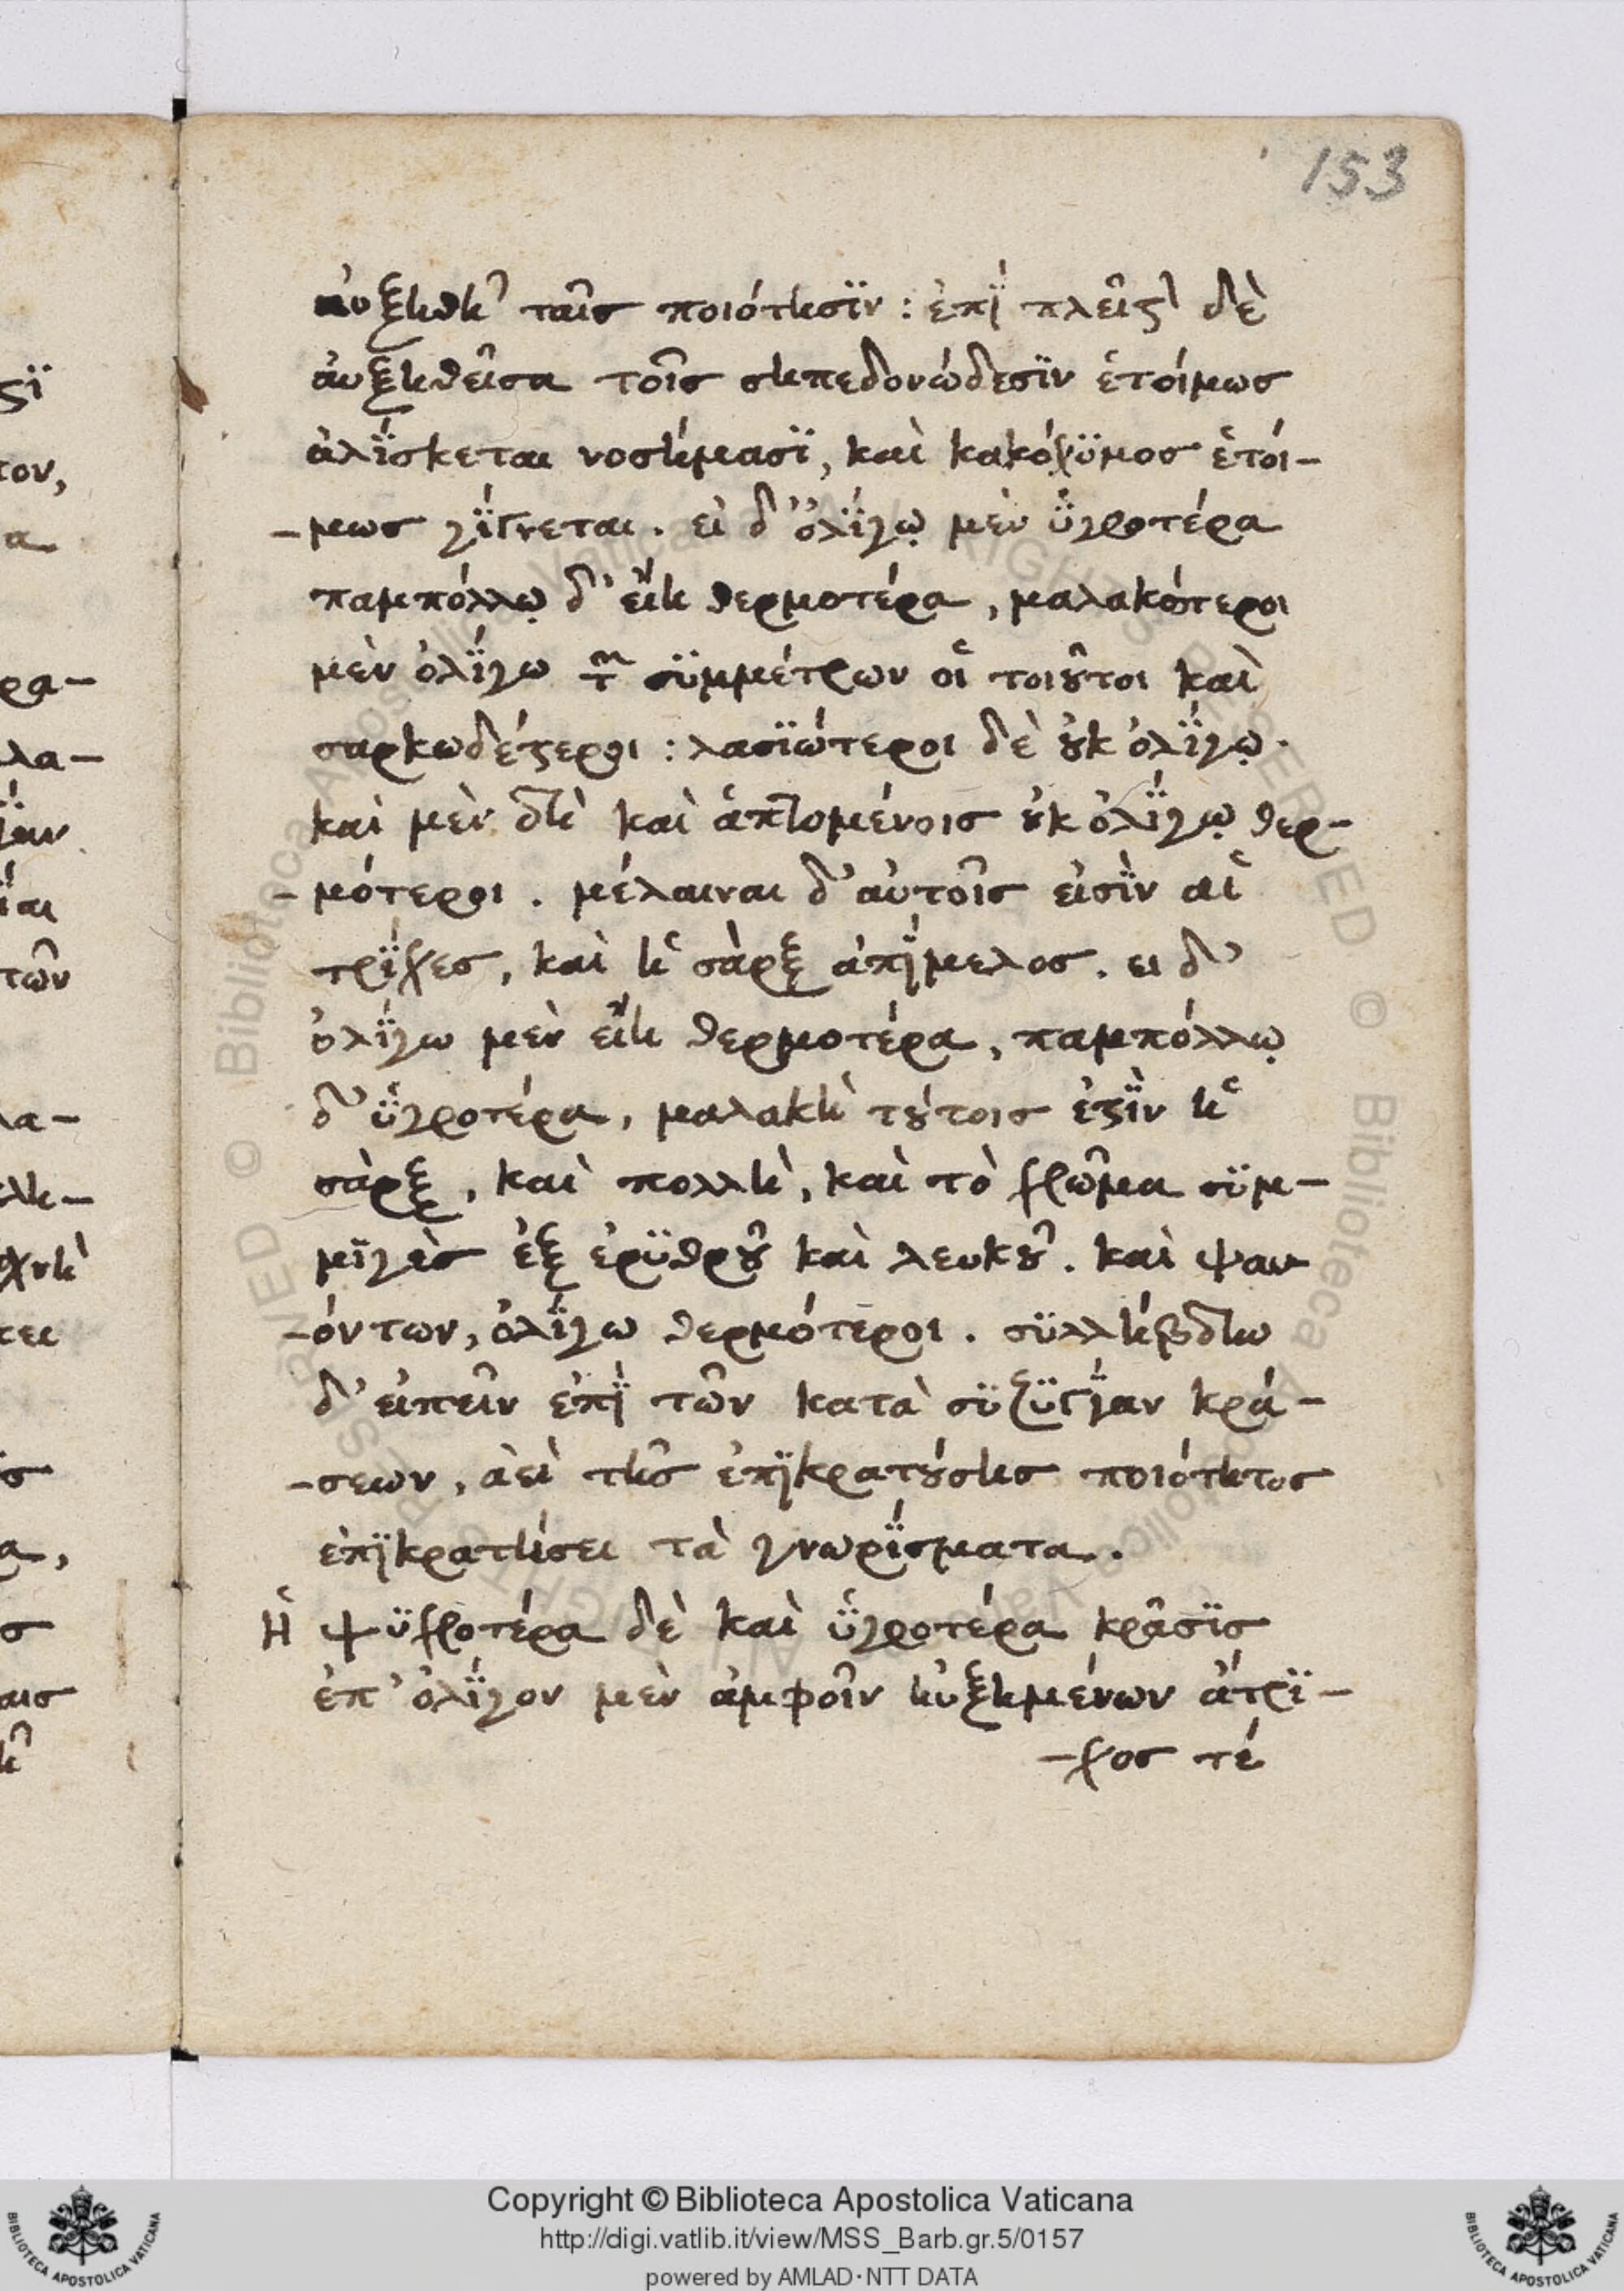 153
αὐξηθῆ ταῖς ποιότησϊν : ἐπῒ πλεῖϛ δὲ
αὐξηθεῖσα τοῖς σηπεδονώδεσϊν ἑτοίμως
ἁλΐσκεται νοσήμασϊ, καὶ κακόχϋμος ἑτοί-
-μως γΐγνεται. εἰ δ' ὀλΐγῳ μὲν ὑγροτέρα
παμπόλλῳ δ' εἴη θερμοτέρα, μαλακώτεροι
μὲν ὀλΐγω τῶν σϋμμέτρων οἱ τοιȣ͂τοι καὶ
σαρκωδέϛεροι : λασϊώτεροι δὲ ȣ̓κ ὀλΐγῳ.
καὶ μὲν δὴ καὶ ἁπτομένοις ȣ̓κ ὀλΐγῳ θερ-
-μότεροι. μέλαιναι δ' αὐτοῖς εἰσῒν αἱ
τρΐχες, καὶ ἡ σὰρξ ἀπΐμελος. ει δ'
ὀλΐγω μὲν εἴη θερμοτέρα, παμπόλλῳ
δ' ὑγροτέρα, μαλακὴ τȣ́τοις ἐϛῒν ἡ
σὰρξ, καὶ πολλὴ, καὶ τὸ χρῶμα σϋμ-
μϊγὲς ἐξ ἐρϋθρȣ͂ καὶ λευκȣ͂. καὶ ψαυ
-όντων, ὀλΐγω θερμότεροι. σϋλλήβδην
δ' εἰπεῖν ἐπῒ τῶν κατὰ σϋζϋγΐαν κρά-
-σεων, ἀεὶ τῆς ἐπϊκρατȣ́σης ποιότητος
ἐπϊκρατήσει τὰ γνωρΐσματα..
Ἡ ψϋχροτέρα δὲ καὶ ὑγροτέρα κρᾶσϊς
ἐπ' ὀλΐγον μὲν ἀμφοῖν ηὐξημένων ἄτρϊ-
-χος τέ
Copyright © Biblioteca Apostolica Vaticana
http://digi.vatlib.it/view/MSS_Barb.gr.5/0157
powered by AMLAD·NTT DATA